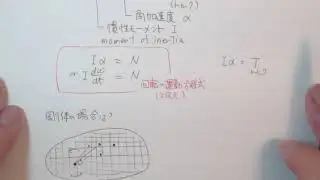 角加速度 α
慣性モーメント I
moment of inertia
Iα = N
or I dω/dt = N
回転の運動方程式
Iα = T
剛体の場合は?